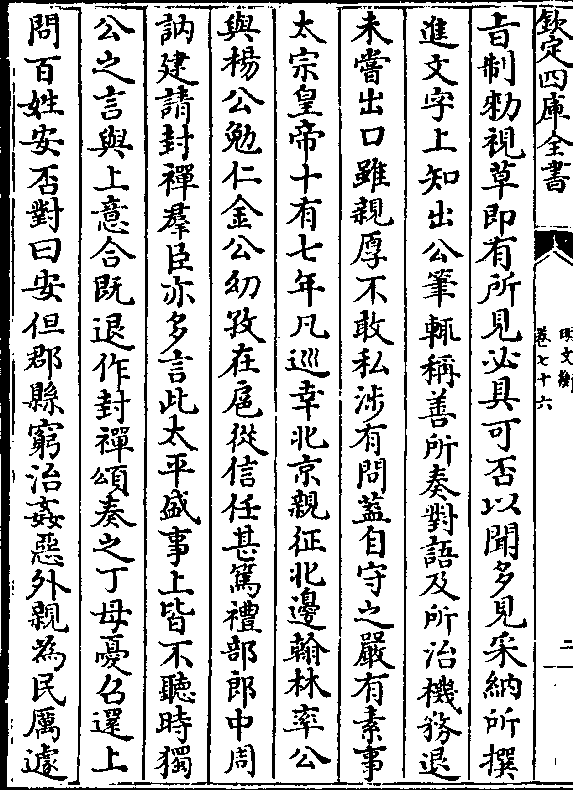 欽定四庫全書
明文衡
卷七十六
二
旨制勑視草即有所見必具可否以聞多見采納所撰
進文字上知出公筆輒稱善所奏對語及所治機務退
未嘗出口雖親厚不敢私涉有問蓋自守之嚴有素事
太宗皇帝十有七年凡巡幸北京親征北邊翰林率公
與楊公勉仁金公幼孜在扈從信任甚篤禮部郎中周
訥建請封禪羣臣亦多言此太平盛事上皆不聽時獨
公之言與上意合既退作封禪頌奏之丁母憂召還上
問百姓安否對曰安但郡縣窮治姦惡外親為民厲遽